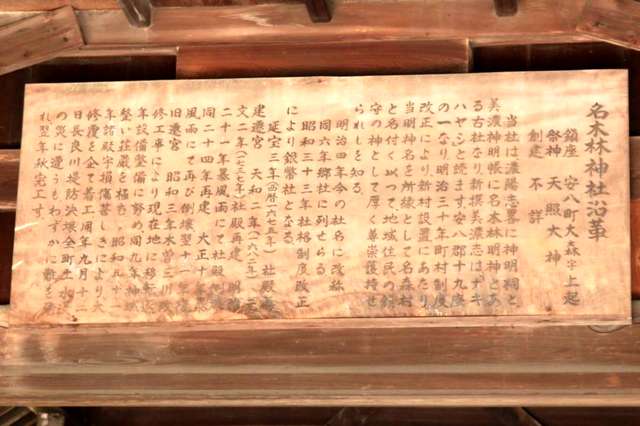 名木林神社沿革
鎮座 安八町大森字上起
祭神 天照大神
創建 不詳
当社は濃陽志畧に神明祠と
美濃神明帳に名木林明神とあ
る古社なり新撰美濃志はナギ
ハヤシと読ます安八郡十九座
の一なり明治三十年町村制度
改正により新村設置にあたり
当明神名を所縁として名森村
と名付く以って地域住民の鎮
守の神として厚く尊崇護持せ
られしを知る
明治四年今の社名に改称
同六年郷社に列せらる
昭和三十三年社格制度改正
により銀幣社となる
延宝三年(西暦一六七五年)社殿再
建遷宮 天和二年(一六八二年)
文二年(一七三七年)社殿再建 明治
二十一年暴風雨にて社殿
同二十四年再建 大正十
風雨にて再び倒壊翌十一年
旧遷宮 昭和三年木曽三川
修工事により現在地に移転
年設備整備に努め同九年神
整い荘厳を極む 昭和五十一
年諸殿宇損傷甚しきにより大
修覆を企て着工同年九月十
日長良川堤防決壊全町
の災に遭うもわずかに難を
れ翌年秋完工す